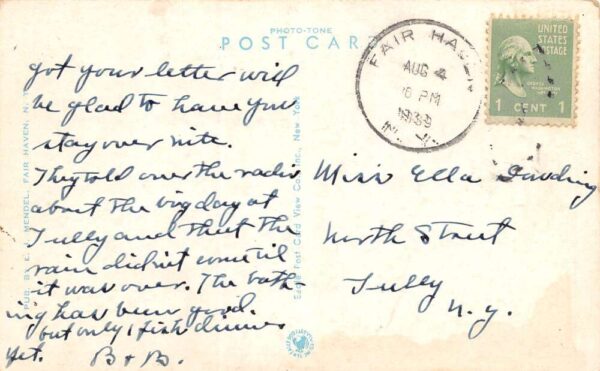 PHOTO-TONE
POST CARD
got your letter will
be glad to have you
stay over nite.
They told over the radio
about the big day at
Tully and that the
rain didn't come til
it was over. The bath-
ing has been good.
but only 1 fish dinner
yet. B & B.
PUB. BY E. A. MENDEL, FAIR HAVEN, N. Y.
Eagle Post Card View Co., Inc., New York
FAIR HAVEN
AUG 4
6 PM
1939
N. Y.
UNITED
STATES
POSTAGE
GEORGE
WASHINGTON
1 CENT 1
Miss Ella
North Street
Tully
N. Y.